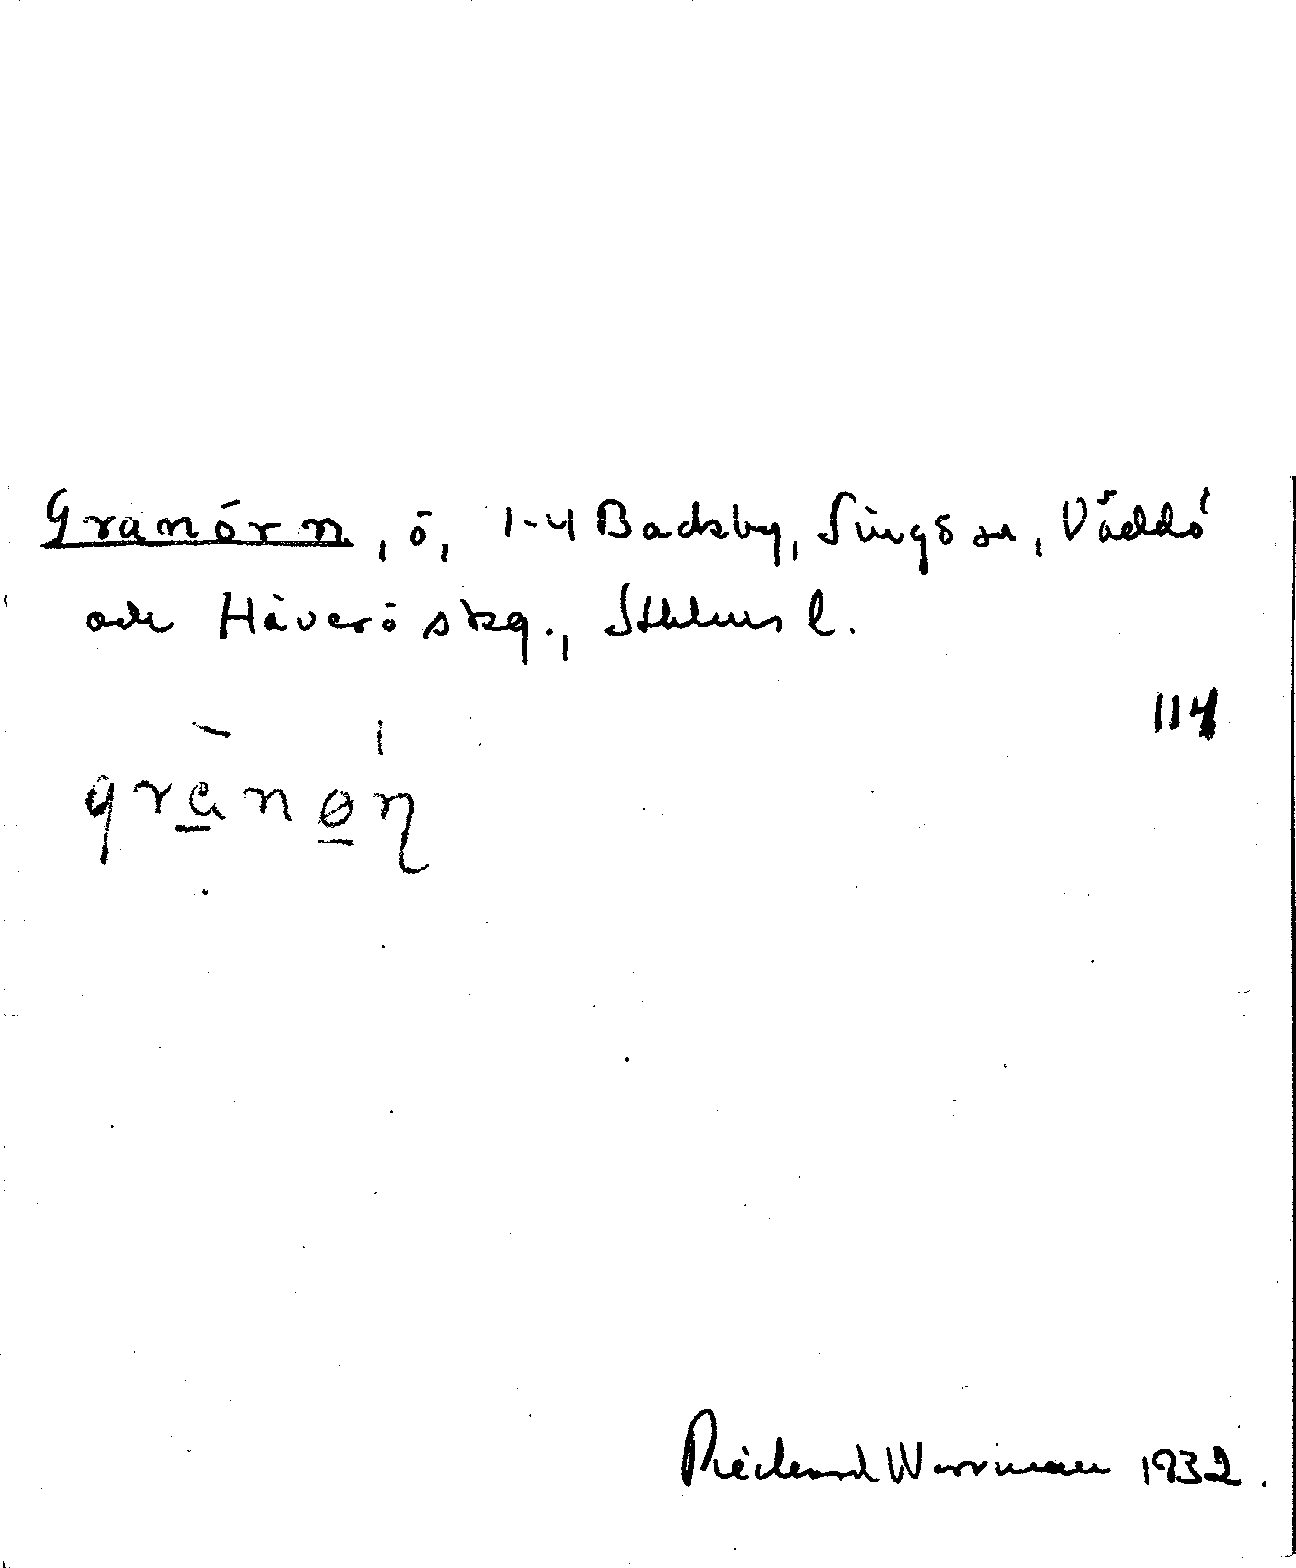 Granörn, ö, 1-4 Backby, Singö sn, Väddö
och Häverö skg., Sthlms l.
114
Richard Warrman 1932.